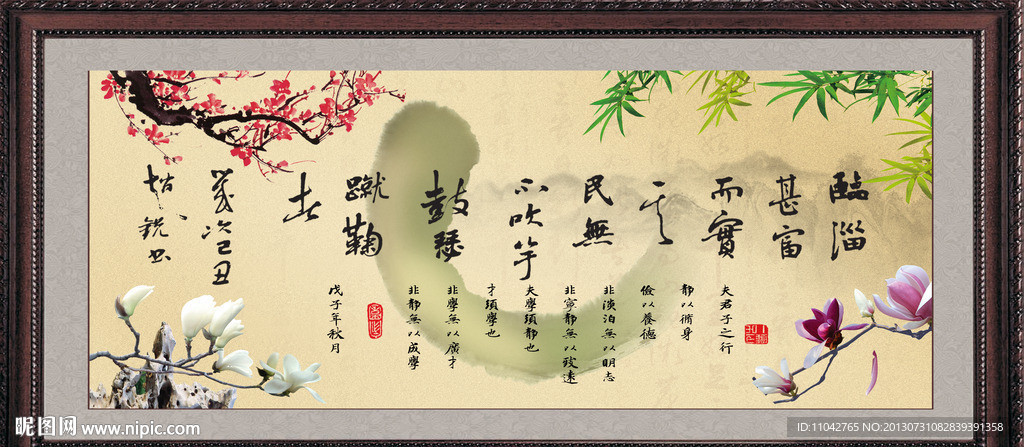 臨淄
甚富
而實
其
民無
不吹竽
鼓瑟
蹴鞠
者
歲次己丑
夫君子之行
靜以脩身
儉以養德
非淡泊無以明志
非寧靜無以致遠
夫學須靜也
才須學也
非學無以廣才
非靜無以成學
戊子年秋月
昵图网 www.nipic.com
ID:11042765 NO:20130731082839391358